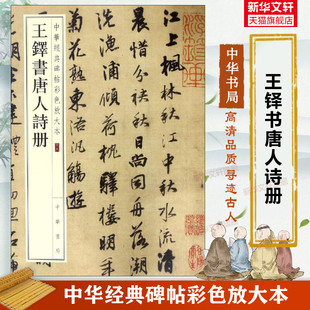 新华文轩
天猫旗舰店
中華經典碑帖彩色放大本
王鐸書唐人詩册
中華書局
江上楓林秋江中秋水流清
晨惜分袂秋日尚同舟落潮
洗漁浦傾荷枕驛樓明年
菊花熟東泛觴遊
中华书局
高清品质寻迹古人
王铎书唐人诗册
中华经典碑帖彩色放大本